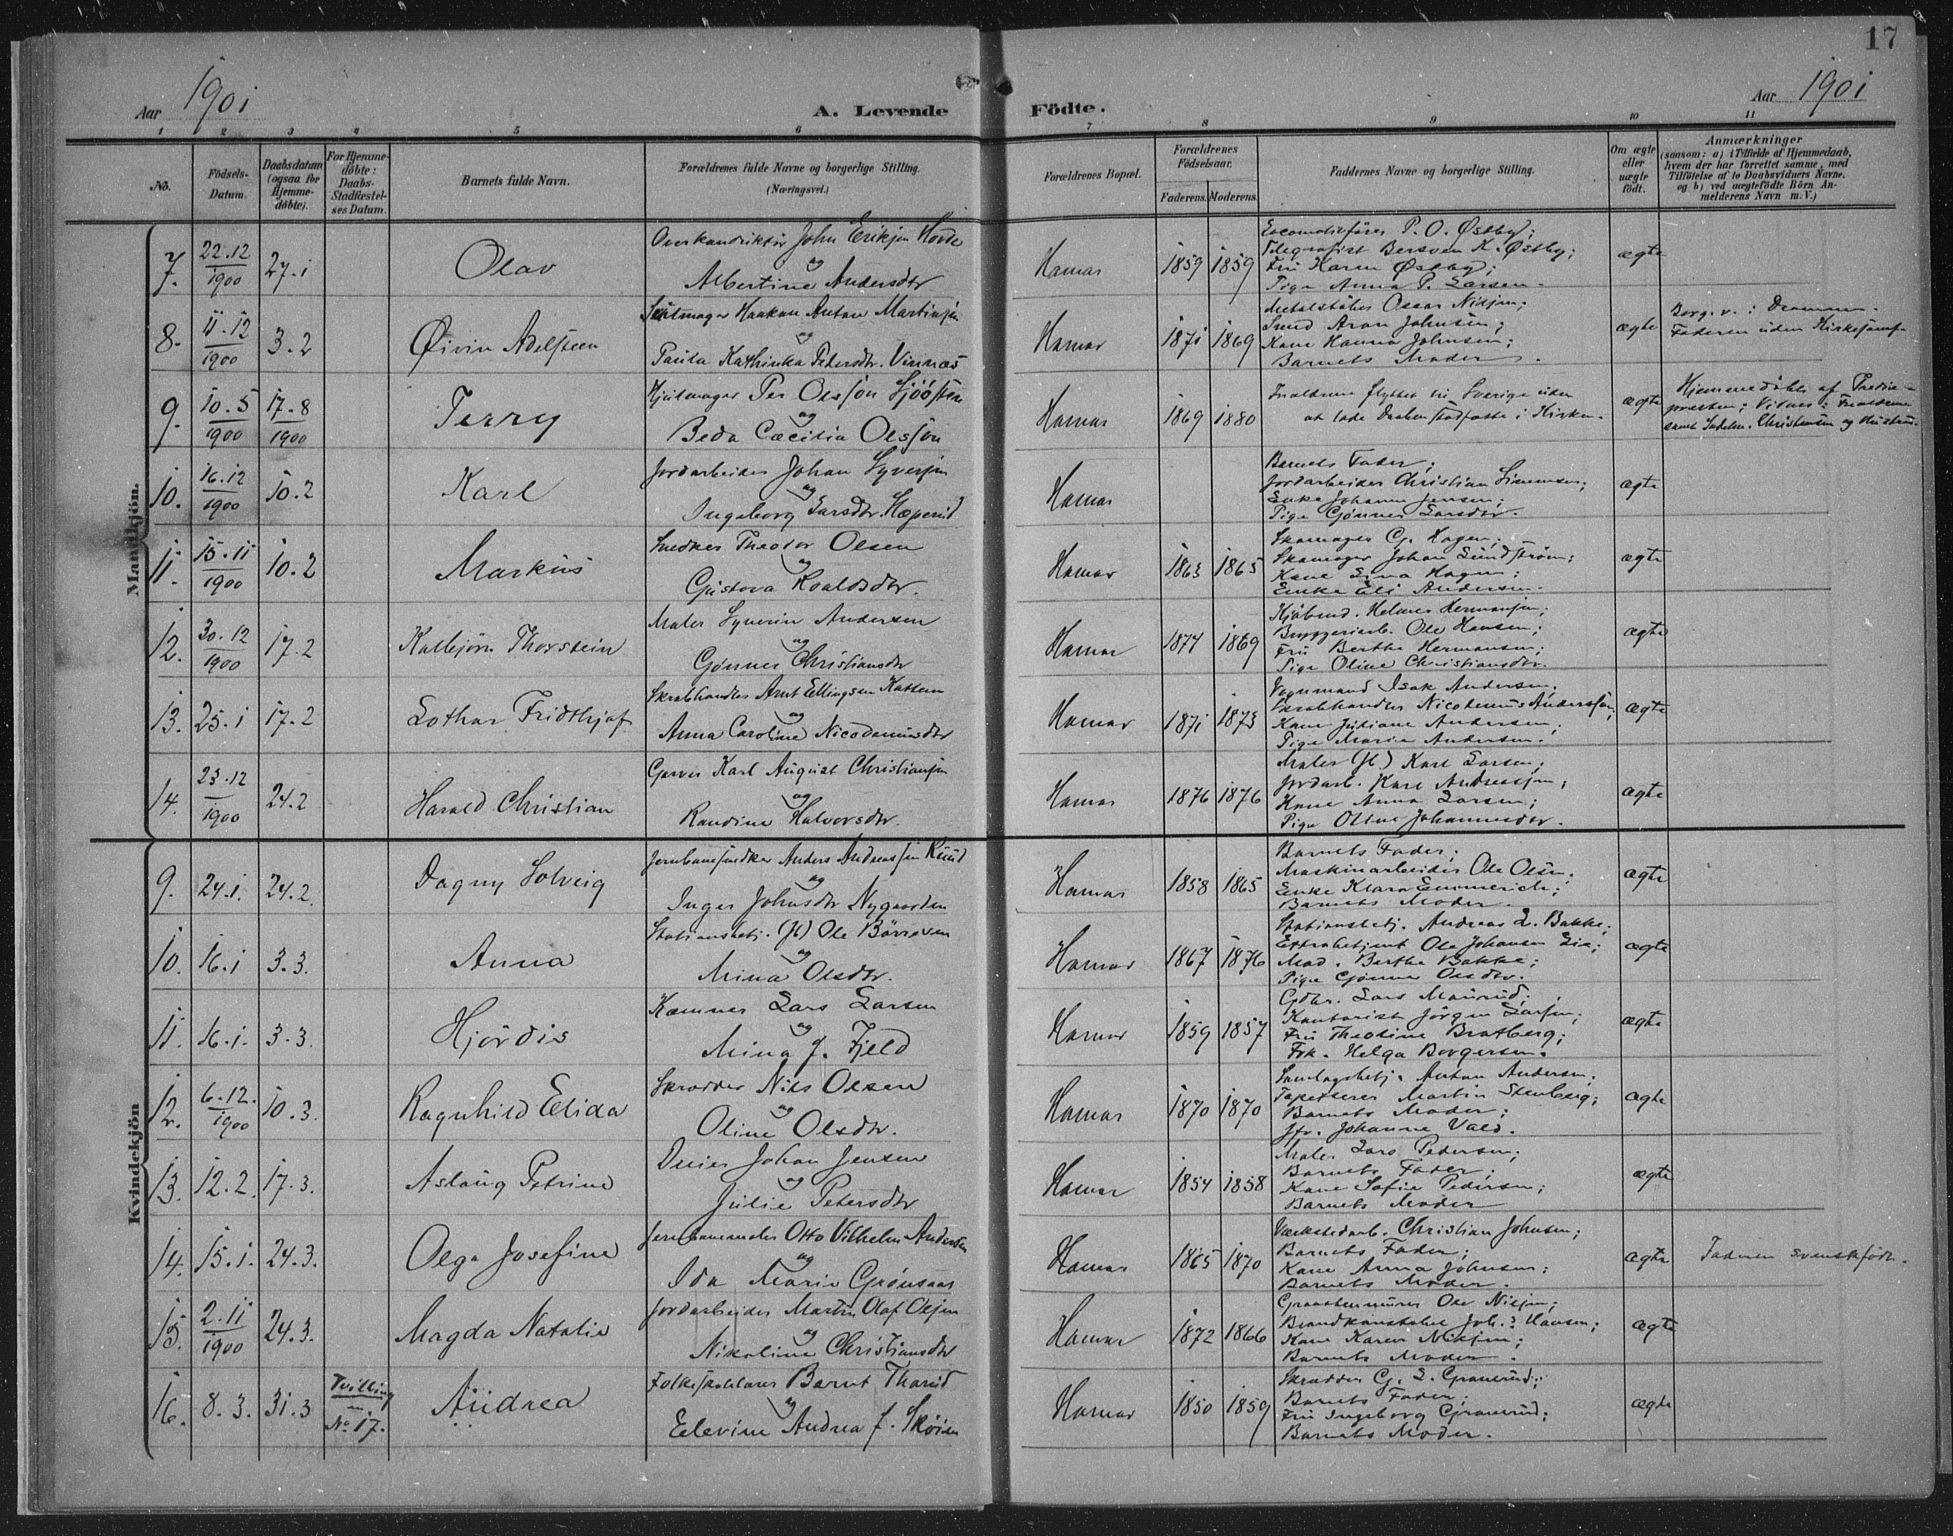 17
Aar 1901
A. Levende
Födte.
Aar 1901
1 2 3 4 5 6 7 8 9 10 11
No.
Födsels-Datum.
Daabsdatum (ogsaa for Hjemme-döbte).
For Hjemme-döbte: Daabs-Stadfæstel-ses Datum.
Barnets fulde Navn.
Forældrenes fulde Navne og borgerlige Stilling. (Næringsvei.)
Forældrenes Bopæl.
Forældrenes Födselsaar.
Faderens. Moderens.
Faddernes Navne og borgerlige Stilling.
Om ægte eller uægte födt.
Anmærkninger
(saasom: a) i Tilfælde af Hjemmedaab,
hvem der har forrettet samme, med
Tilföielse af to Daabsvidners Navne.
og b) ved uægtefödte Börn An-
melderens Navn m. V.)
Mandkjön.
7. 22.12 1900 27.1 Olav
Overkonduktör John Eriksen Hovde
og
Albertine Andersdtr
Hamar 1859 1859
Locomotivförer P. O. Østby;
Telegrafist Bersven K. Østby;
Fru Karen Østby;
Pige Anna P. Larsen.
ægte
8. 11.12 1900 3.2 Øivin Adelsteen
Haakon Anton Martinsen
og
Paula Kathinka Petersdtr.
Hamar 1871 1869
Metalstöber Oscar Nilsen;
Smed Aron Johnsen;
Kone Hanna Johnsen;
Barnets Moder.
ægte
Borg. v. i Drammen.
Faderen uden Kirkesamf.
9. 10.5 1900 17.8 1900 Terry
Hjulmager Per Olsson Sjöösten
og
Beda Cæcilia Olsson
Hamar 1869 1880
Forældrene flyttet til Sverige uden
at lade Daaben stadfæste i Kirken.
ægte
Hjemmedöbt af Fredie-
presten; Vidner: Forældrene
samt Christensen og Hustru.
10. 16.12 1900 10.2 Karl
Jordarbeider Johan Syversen
og
Ingeborg Larsdtr.
Hamar
Barnets Fader;
Jordarbeider Christian Simensen;
Enke Johanne Jensen;
Pige Gjönner Larsdtr.
ægte
11. 15.11 1900 10.2 Markus
Snedker Theodor Olsen
og
Gustava Roaldsdtr.
Hamar 1863 1865
Skomager G. Hagen;
Skomager Johan Sundström;
Kone Lina Hagen;
Enke Eli Andersen.
ægte
12. 30.12 1900 17.2 Kolbjörn Thorstein
Maler Syverin Andersen
og
Gjönner Christiansdtr
Hamar 1874 1869
Helmer Hermansen;
Bryggeriarb. Ole Hansen;
Fru Berthe Hermansen;
Pige Oline Christiansdtr.
ægte
13. 25.1 17.2 Lothar Fridthjof
Skrabhandler Arnt Ellingsen
og
Anna Caroline Nicodemusdtr
Hamar 1871 1873
Vognmand Isak Andersen;
Skrabhandler Nicodemus Anderssen;
Kone Juliane Andersen;
Pige Marie Andersen.
ægte
14. 23.12 1900 24.2 Harald Christian
Garver Karl August Christiansen
og
Randine Halvorsdtr.
Hamar 1876 1876
Maler (Jb) Karl Larsen;
Jordarb. Karl Andreassen;
Kone Anna Larsen;
Pige Oline Johannesdtr.
ægte
Kvindekjön
9. 24.1. 24.2. Dagny Solveig
Jernbanesnedker Anders Andreassen Ruud
og
Inger Johnsdtr Nygaarden
Hamar 1858 1865
Barnets Fader;
Maskinarbeider Ole Olsen;
Enke Klara Emmerich;
Barnets Moder.
ægte
10. 16.1 3.3. Anna
Stationsbetj. (Jb) Ole Börresen
og
Mina Olsdtr.
Hamar 1867 1876
Stationsbetj. Andreas L. Bakke;
Extrabetjent Ole Johansen Lie;
Mad. Berthe Bakke;
Pige Gjönner Olsdtr.
ægte
11. 16.1. 3.3. Hjördis
Kæmner Lars Larsen
og
Mina J. Fjeld
Hamar 1859 1857
Gdbr. Lars Maurud;
Kontorist Jörgen Larsen;
Fru Theoline Bratberg;
Frk. Helga Borgersen.
ægte
12. 6.12. 1900 10.3. Ragnhild Elida
Skrædder Nils Olsen
og
Oline Olsdtr.
Hamar 1870 1870
Samlagsbetj. Anton Andersen;
Tapetserer Martin Stenberg;
Barnets Moder;
Jfr. Johanne Vald.
ægte
13. 12.2. 17.3. Aslaug Petrine
Dreier Johan Jensen
og
Julie Petersdtr
Hamar 1854 1858
Maler Lars Pedersen;
Barnets Fader;
Kone Sofie Pedersen;
Barnets Moder
ægte
14. 15.1. 24.3. Olga Josefine
Jernbanemaler Otto Vilhelm Andersen
og
Ida Marie Grönsaas
Hamar 1865 1870
Værkstedarb. Christian Johnsen;
Barnets Fader;
Kone Anna Johnsen;
Barnets Moder.
ægte
Faderen svenskfödt.
15. 2.11 1900 24.3. Magda Natalie
Jordarbeider Martin Olaf Olsen
og
Nikoline Christiansdtr
Hamar 1872 1866
Graastensmurer Ole Nilsen;
Brandkonstabel Joh. Hansen;
Kone Karen Nilsen;
Barnets Moder.
ægte
16. 8.3. 31.3 Tvilling m. No 17. Andrea
Folkeskolelærer Bernt Thorud
og
Elevine Andrea J. Sköien
Hamar 1850 1859
Skrædder G. L. Granerud;
Barnets Fader;
Fru Ingeborg Granerud;
Barnets Moder.
ægte